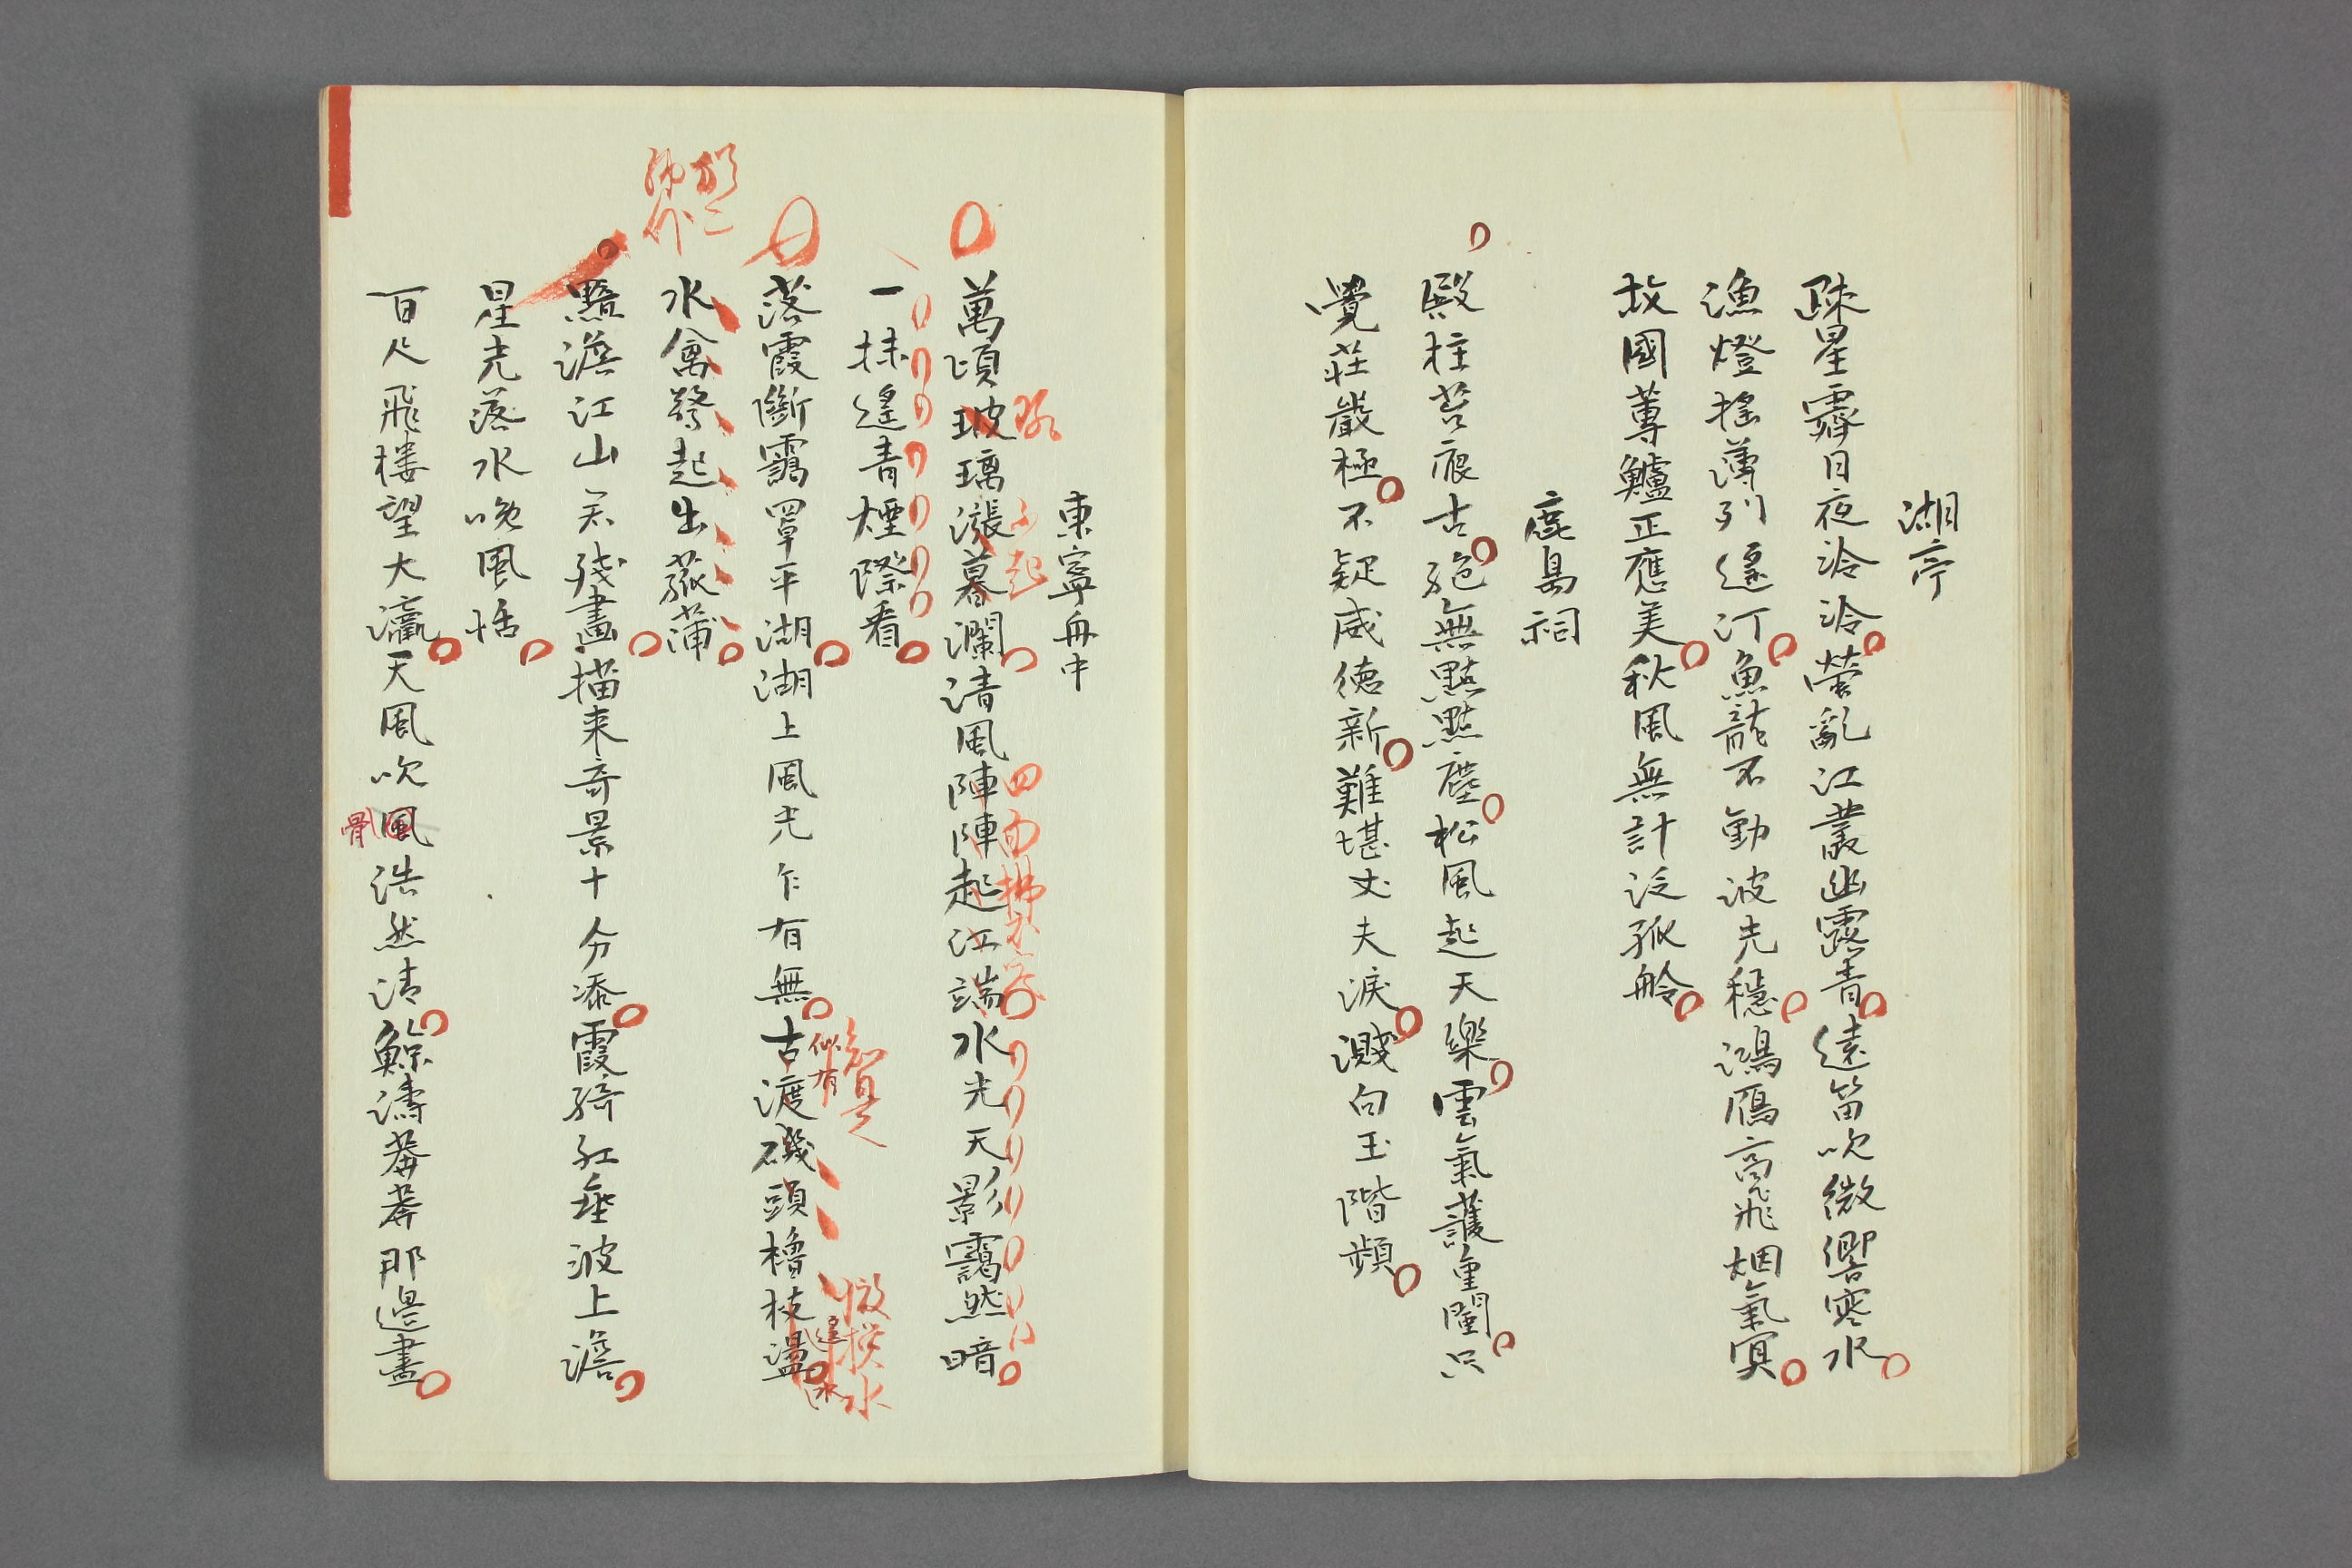 湖亭
疎星霽月夜泠泠螢亂江叢幽露青遠笛吹微響寒水
漁燈搖薄列遥汀魚龍不動波光穩鴻鴈高飛烟氣冥
故國蓴鱸正應美秋風無計泛孤舲
鹿島祠
殿柱苔痕古絶無點點塵松風起天樂雲氣護重闉只
覺莊嚴極不疑威徳新難堪丈夫涙濺向玉階頻
東寧舟中
萬頃玻璃漲暮瀾清風陣陣起江端水光天影靄然暗
起
四面拂衣寒
一抹遥青煙際看
落霞斷靄罩平湖湖上風光乍有無古渡磯頭櫓枝盪
似有
水
水禽驚起出菰蒲
黯澹江山若殘畫描来奇景十分添霞綺紅垂波上澹
星光落水晩風恬
百尺飛楼望大瀛天風吹風浩然清鯨濤莽莽那邊盡
骨